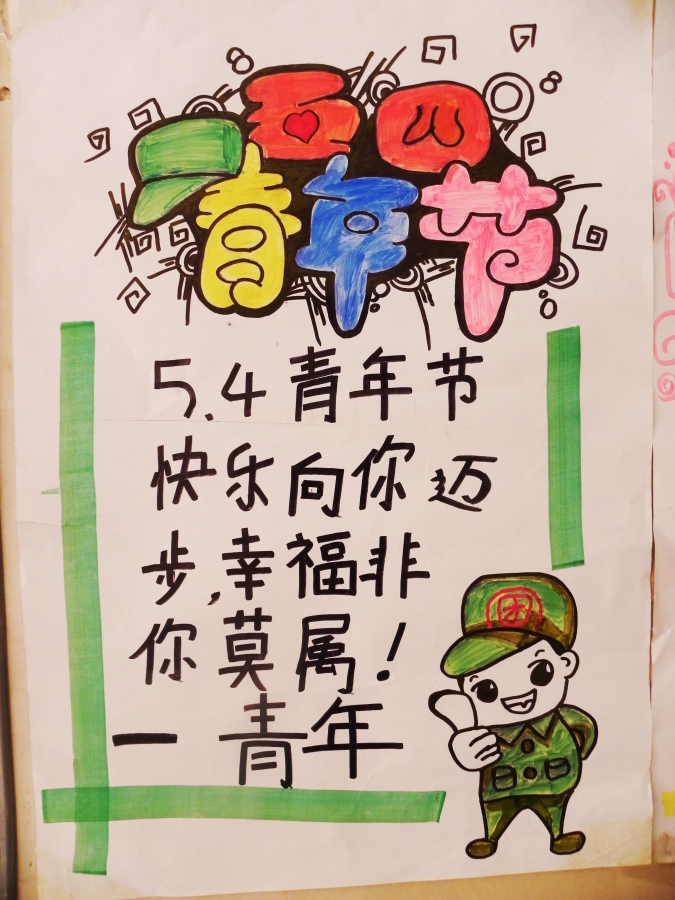 五四
青年节
5.4青年节
快乐向你迈
步,幸福非
你莫属!
一青年
团